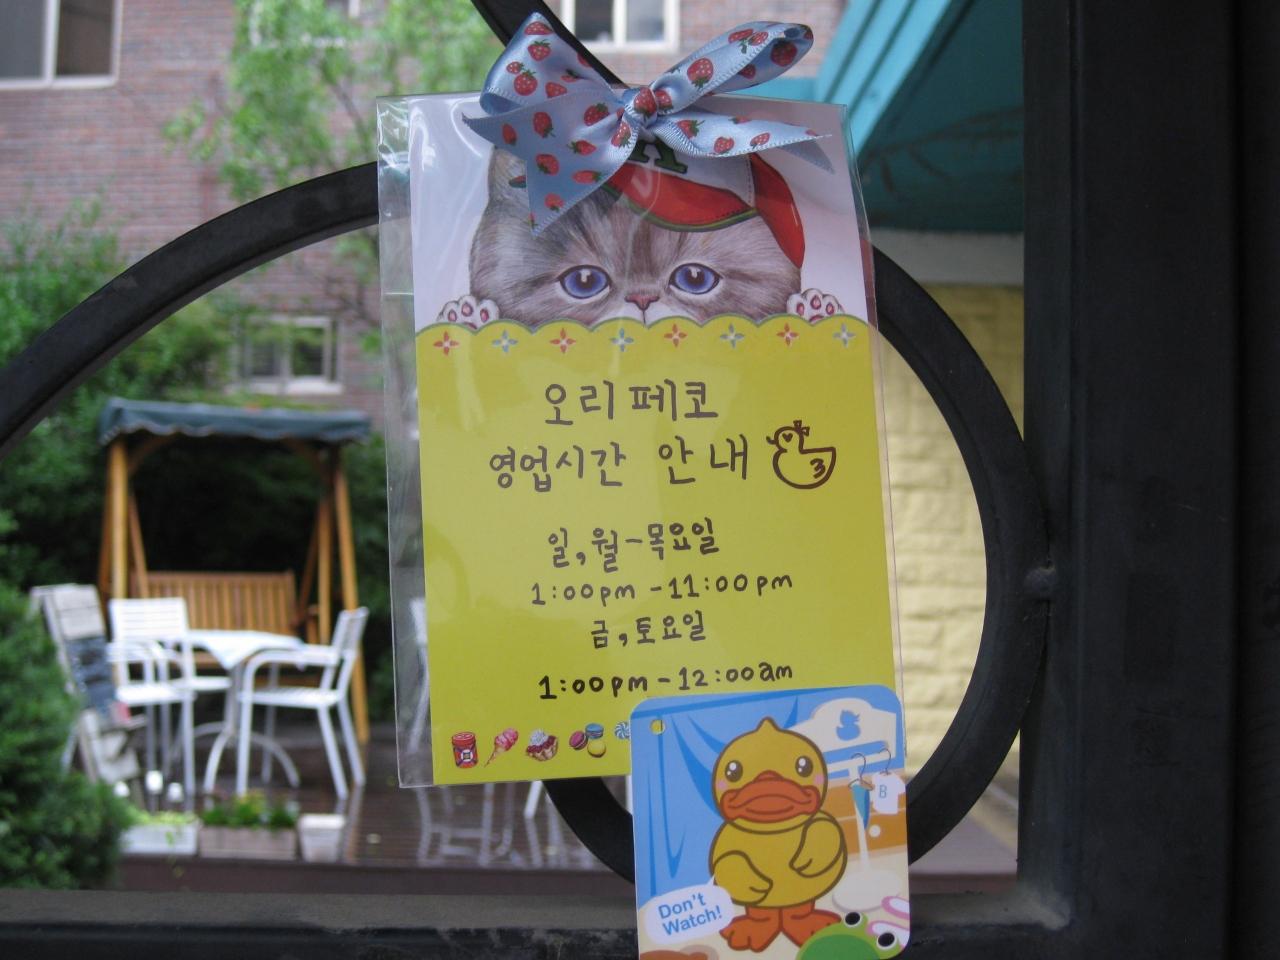 K
오리페코
영업시간 안내
3
일,월-목요일
1:00pm-11:00pm
금,토요일
1:00pm-12:00am
B
Don't
Watch!